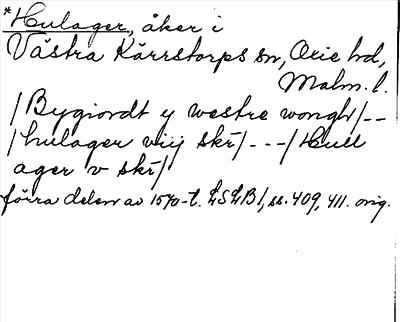 *Hulager, åker i
Västra Kärrstorps sn, Oxie hd,
Malm. l.
/Bygiordt y westre wongh/--
/hulager viij skr̄/---/Hull
ager v skr̄/
förra delen av 1570-t. LSLB1, ss. 409, 411. orig.